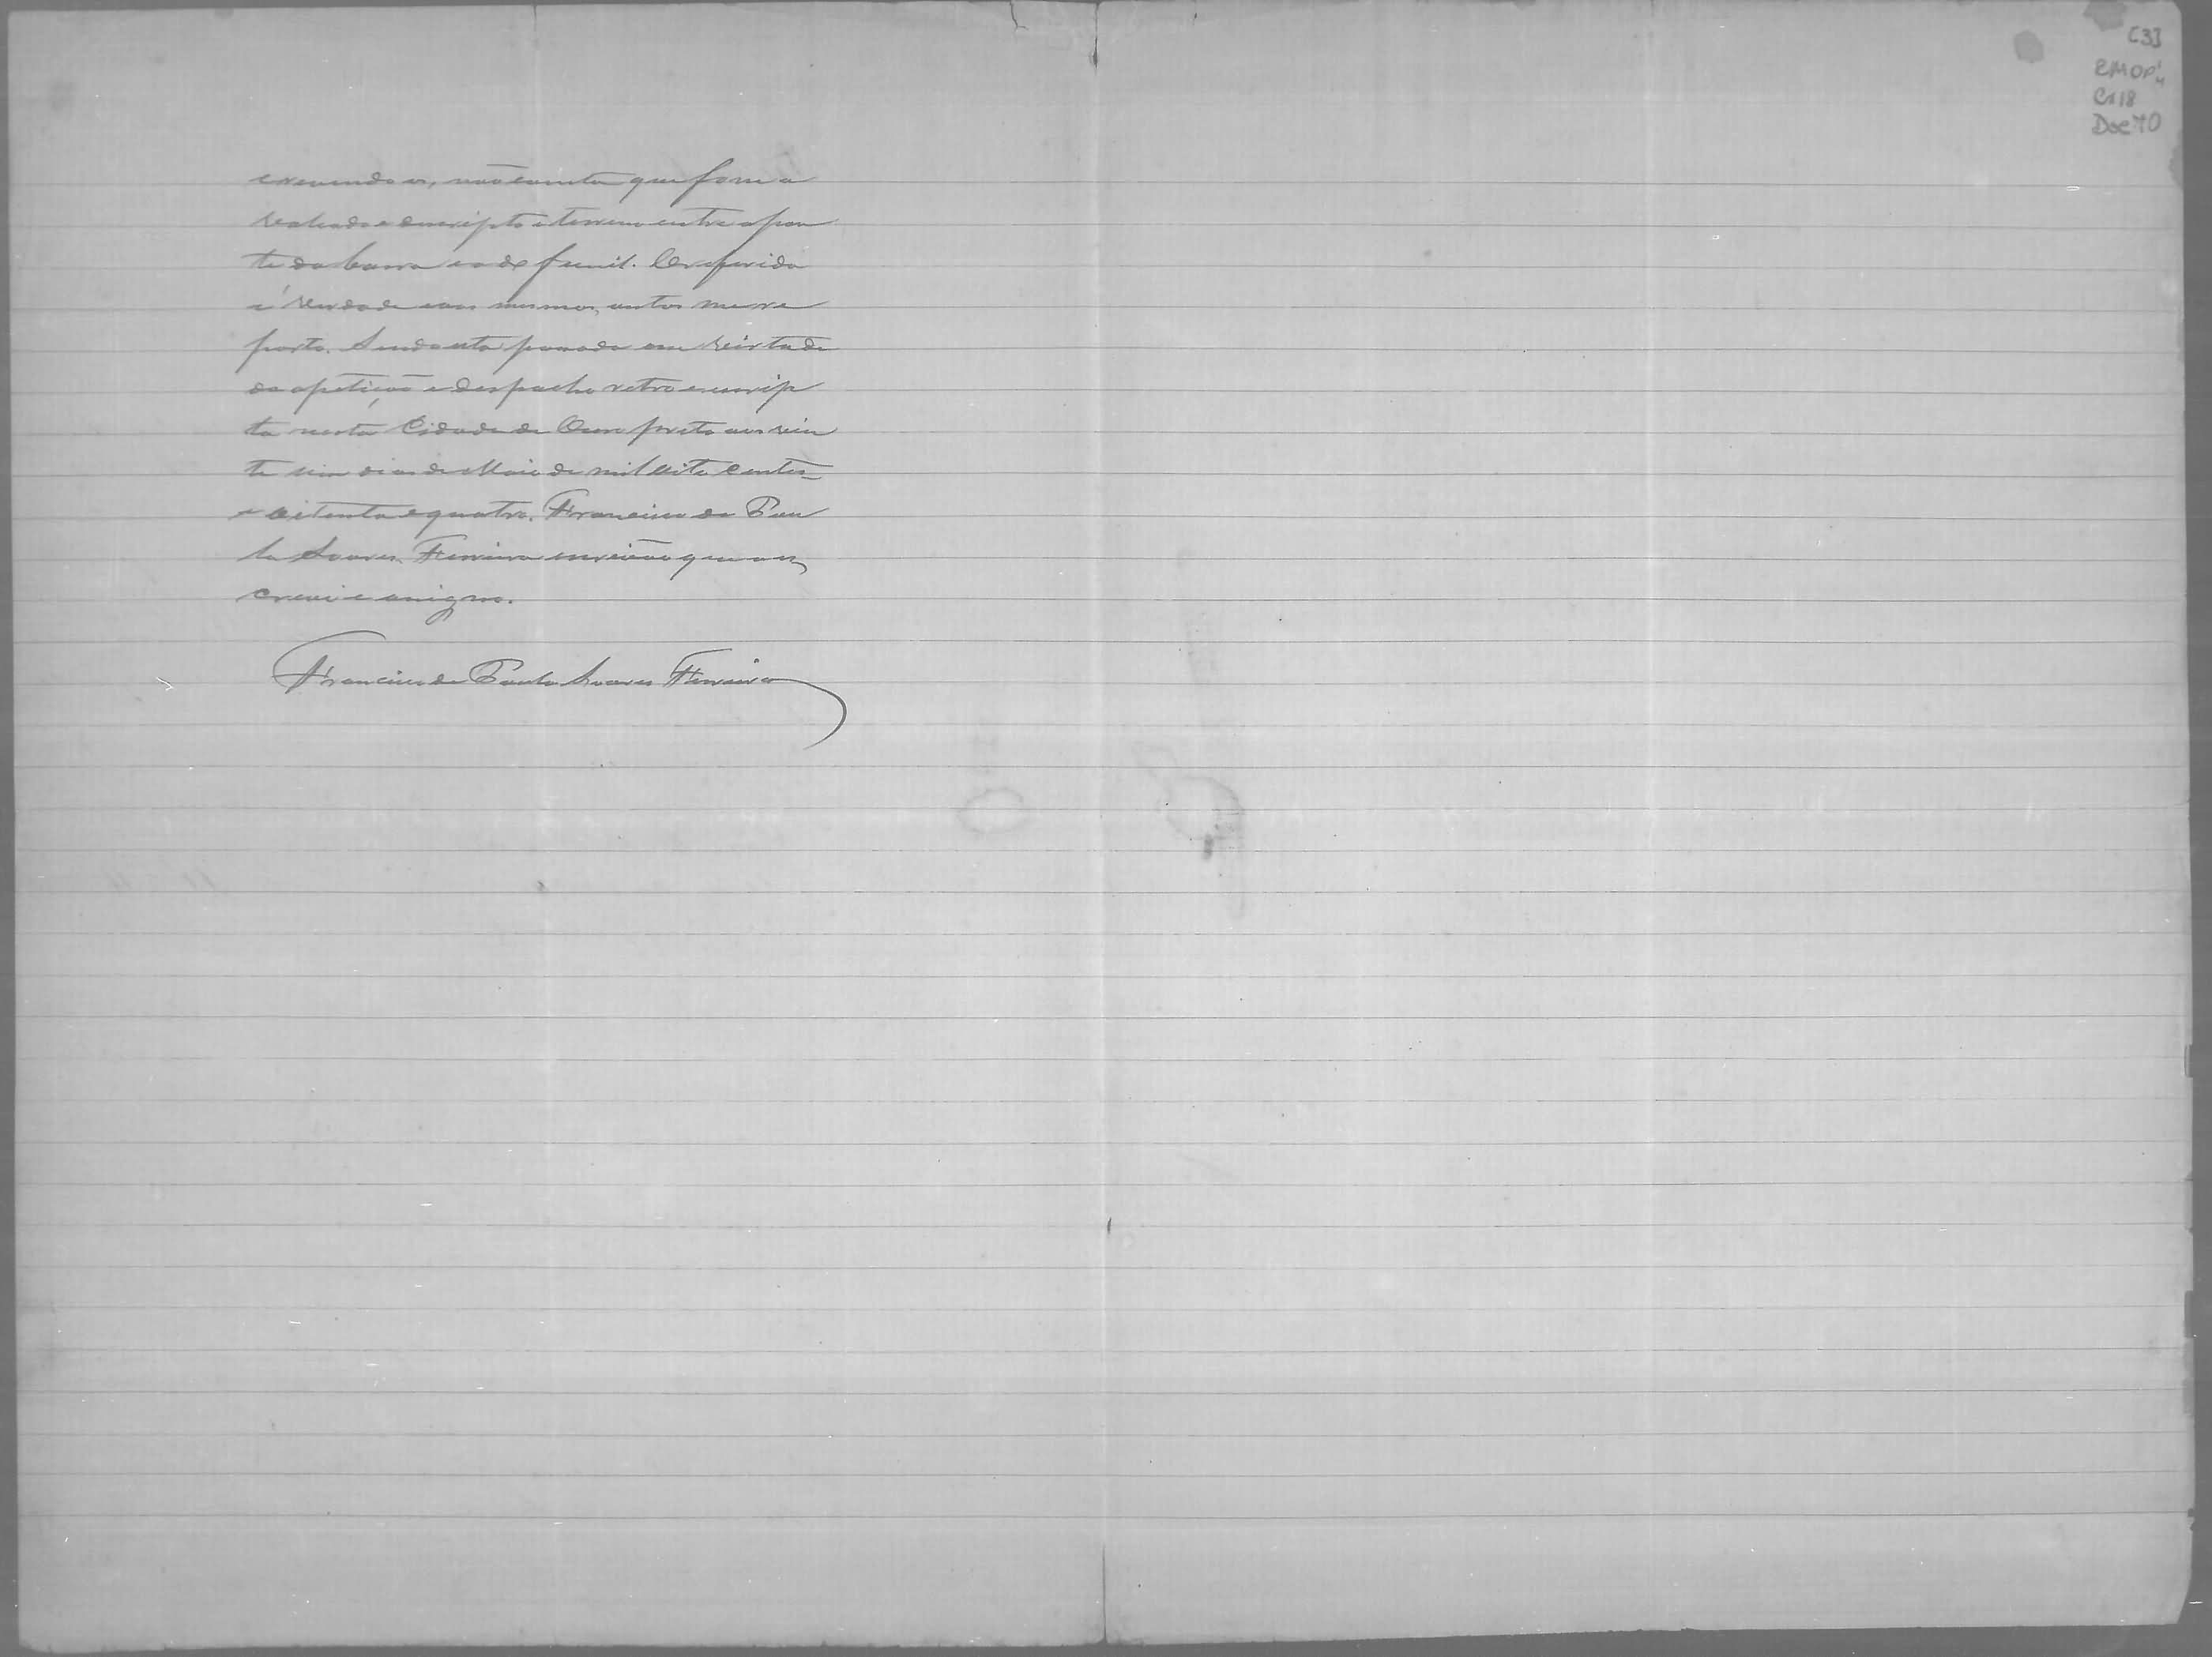 [3]
EMOP
Cx18
Doc 70
crevendo os, não consta que fosse a
valiado e descripto o terreno entre a pon
te da barra e a do funil. O referido
é verdade e aos mesmos autos me re
porto. Sendo esta passada em virtude
da petição e despacho retro e escrip
ta nesta Cidade de Ouro preto aos vin
te um dias de Maio de mil oito centos
e oitenta e quatro. Francisco de Pau
la Soares Ferreira escrivão que a es
crevi e assigno.
Francisco de Paula Soares Ferreira